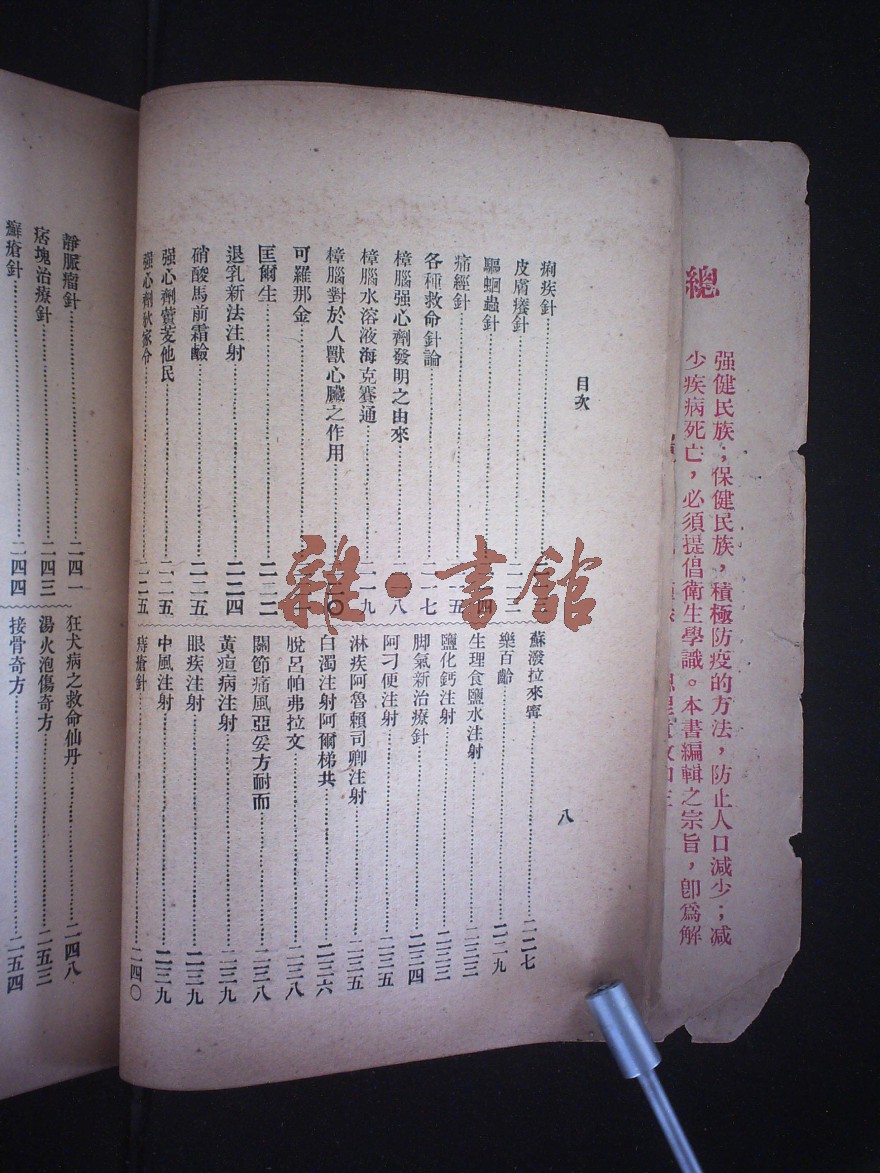 總
强健民族；保健民族，積極防疫的方法，防止人口減少；減
少疾病死亡，必須提倡衛生學識。本書編輯之宗旨，卽爲解
目次
八
痢疾針
皮膚癢針
驅蛔蟲針
痛經針
各種救命針論 二一七
樟腦强心劑發明之由來
樟腦水溶液海克賽通 二一九
樟腦對於人獸心臟之作用
可羅那金
匡爾生 二二二
退乳新法注射 二二四
硝酸馬前霜鹼 二二五
强心劑實芰他民 二二五
强心劑狄家令 二二五
蘇潑拉來寗 二二七
樂百齡 二二九
生理食鹽水注射 二三三
鹽化鈣注射 二三三
脚氣新治療針 二三四
阿刁便注射 二三五
淋疾阿魯賴司卿注射 二三五
白濁注射阿爾梯共 二三六
脫呂帕弗拉文 二三八
關節痛風亞妥方耐而 二三八
黃疸病注射 二三九
眼疾注射 二三九
中風注射 二三九
痔瘡針 二四〇
靜脈瘤針 二四一
痞塊治療針 二四三
癬瘡針 二四四
狂犬病之救命仙丹 二四八
湯火泡傷奇方 二五三
接骨奇方 二五四
雜·書館